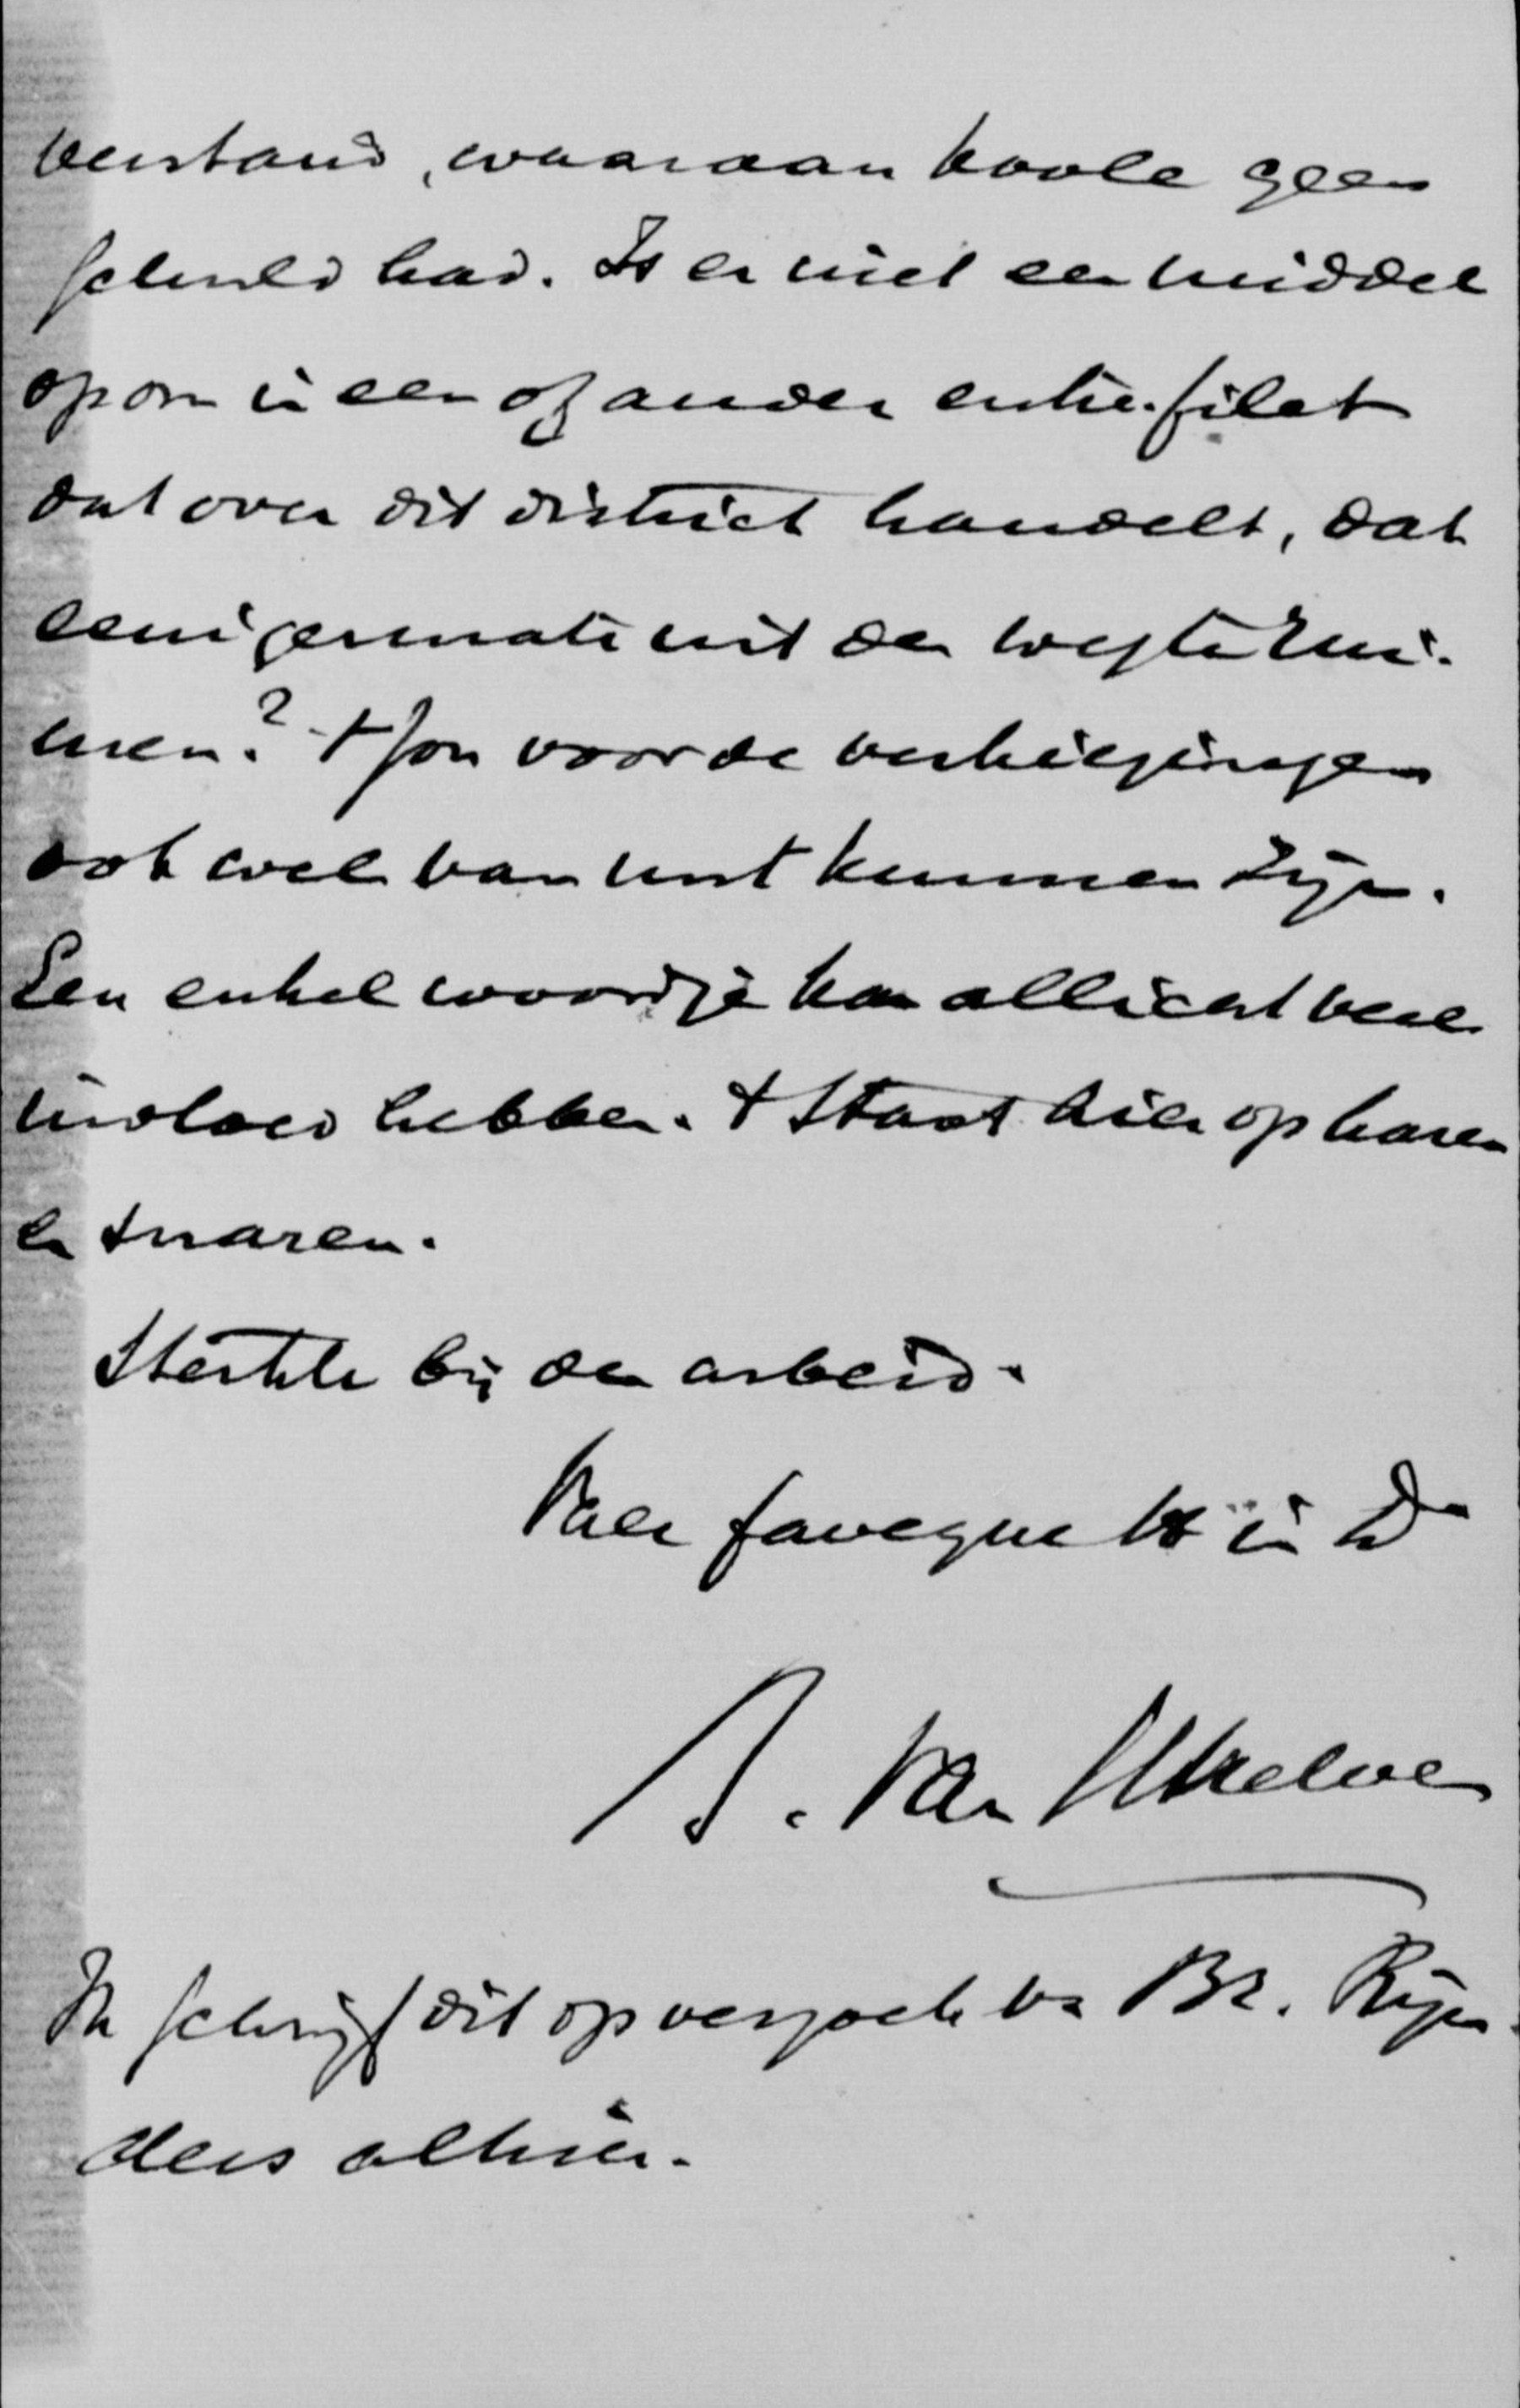 verstand, waaraan Koole geen
schuld had. Is er niet een middel
op om in een of ander entre-filet
dat over dit district handelt, dat
eenigermate uit den weg te rui-
men? 't Zou voor de verkiezingen
ook wel van nut kunnen zijn.
Een enkel woordje kan allicht veel
invloed hebben. 't Staat hier op haren
en snaren.
Sterkte bij den arbeid.
Vale faveque tt in Dº
J. van
Ik schrijf dit op verzoek van Br. Rijn-
ders alhier.